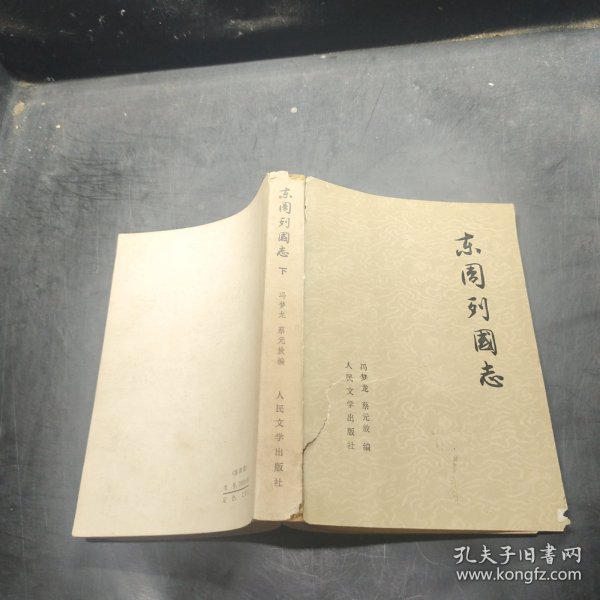 东周列國志
冯梦龙 蔡元放 编
人民文学出版社
东周列國志
下
冯梦龙 蔡元放编
人民文学出版社
孔夫子旧书网
www.kongfz.com